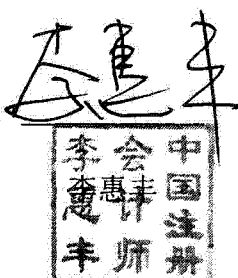 李惠丰
中国注册
会计师
李惠丰
李惠丰